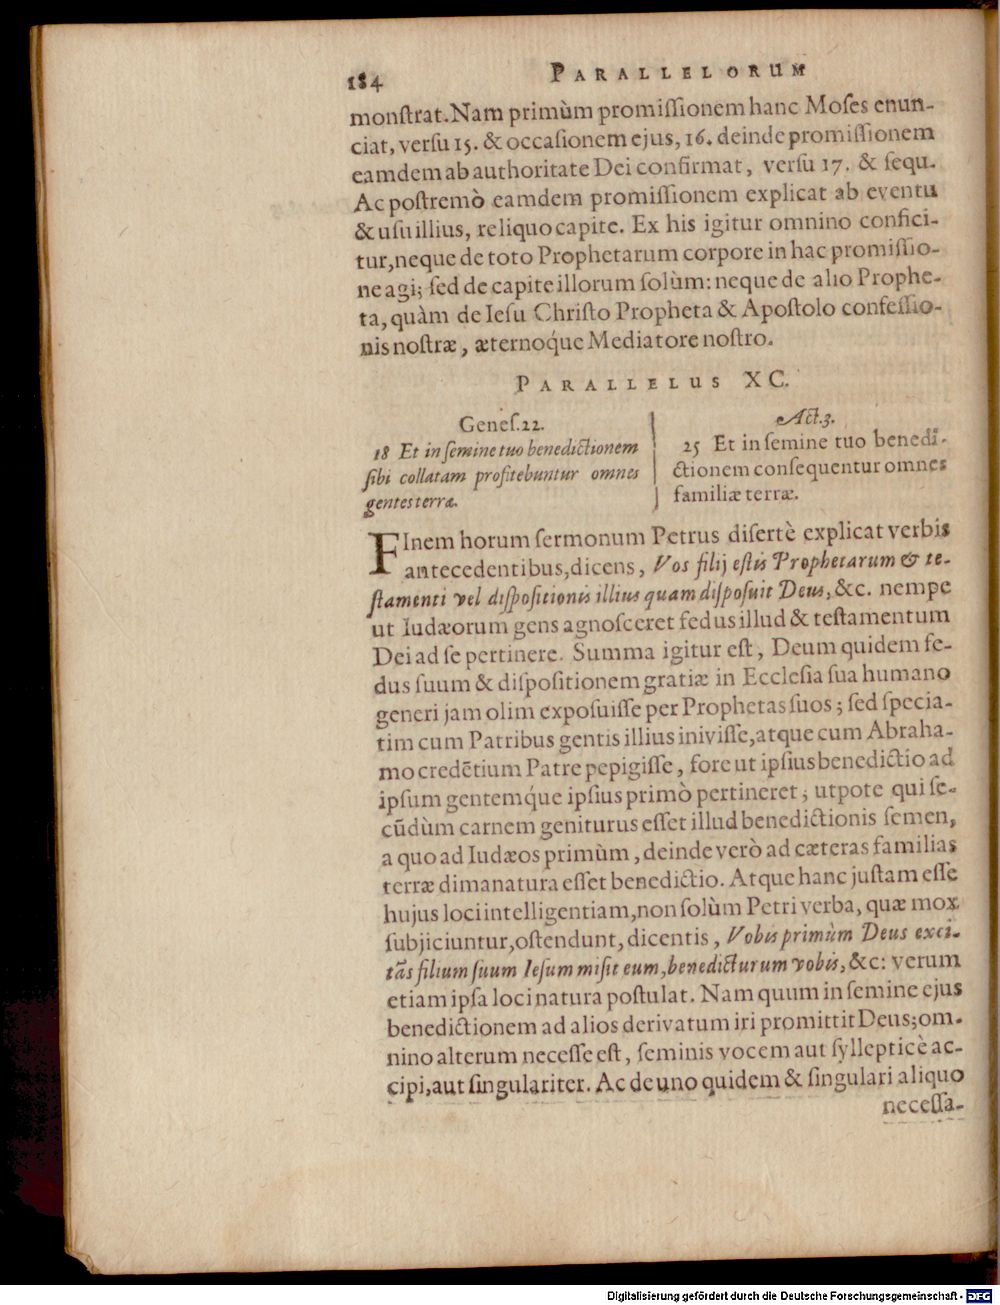 184 PARALLELORUM
monstrat. Nam primùm promissionem hanc Moses enun-
ciat, versu 15. & occasionem ejus, 16. deinde promissionem
eamdem ab authoritate Dei confirmat, versu 17. & sequ.
Ac postremò eamdem promissionem explicat ab eventu
& usu illius, reliquo capite. Ex his igitur omnino confici-
tur, neque de toto Prophetarum corpore in hac promissio-
ne agi; sed de capite illorum solùm: neque de alio Prophe-
ta, quàm de Iesu Christo Propheta & Apostolo confessio-
nis nostræ, æternoq́ue Mediatore nostro.
PARALLELUS XC.
Genes. 22.
18 Et in semine tuo benedictionem
sibi collatam profitebuntur omnes
gentes terræ.
Act. 3.
25 Et in semine tuo benedi-
ctionem consequentur omnes
familiæ terræ.
FInem horum sermonum Petrus disertè explicat verbis
antecedentibus, dicens, Vos filij estis Prophetarum & te-
stamenti vel dispositionis illius quam disposuit Deus, &c. nempe
ut Iudæorum gens agnosceret fedus illud & testamentum
Dei ad se pertinere. Summa igitur est, Deum quidem fe-
dus suum & dispositionem gratiæ in Ecclesia sua humano
generi jam olim exposuisse per Prophetas suos; sed specia-
tim cum Patribus gentis illius inivisse, atque cum Abraha-
mo credẽtium Patre pepigisse, fore ut ipsius benedictio ad
ipsum gentemq́ue ipsius primò pertineret; utpote qui se-
cũdùm carnem geniturus esset illud benedictionis semen,
a quo ad Iudæos primùm, deinde verò ad cæteras familias
terræ dimanatura esset benedictio. Atque hanc justam esse
hujus loci intelligentiam, non solùm Petri verba, quæ mox
subjiciuntur, ostendunt, dicentis, Vobis primùm Deus exci-
tãs filium suum Iesum misit eum, benedicturum vobis, &c: verum
etiam ipsa loci natura postulat. Nam quum in semine ejus
benedictionem ad alios derivatum iri promittit Deus; om-
nino alterum necesse est, seminis vocem aut syllepticè ac-
cipi, aut singulariter. Ac de uno quidem & singulari aliquo
necessa-
Digitalisierung gefördert durch die Deutsche Forschungsgemeinschaft - DFG